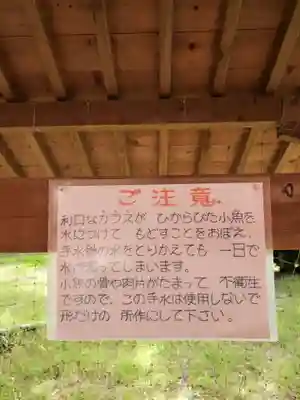 ご注意
利口なカラスが ひからびた小魚を
水につけて もどすことをおぼえ、
手水鉢の水をとりかえても 一日で
水が腐ってしまいます。
小魚の骨や肉片がたまって 不衛生
ですので、この手水は使用しないで
形だけの 所作にして下さい。